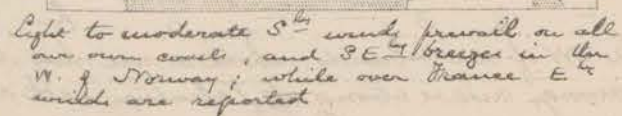 Light to moderate S^ly winds prevail on all
our own coasts, and SE^ly breezes in the
W. of Norway; while over France E^ly
winds are reported